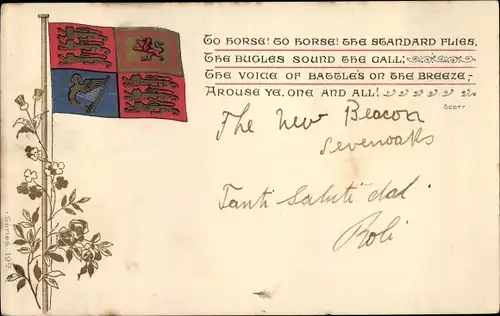 To horse! to horse! the standard flies,
The bugles sound the call;
The voice of battle's on the breeze,-
Arouse ye, one and all!
Scott
The New Beacon
Sevenoaks
Tanti saluti dal
Roli
Series 199